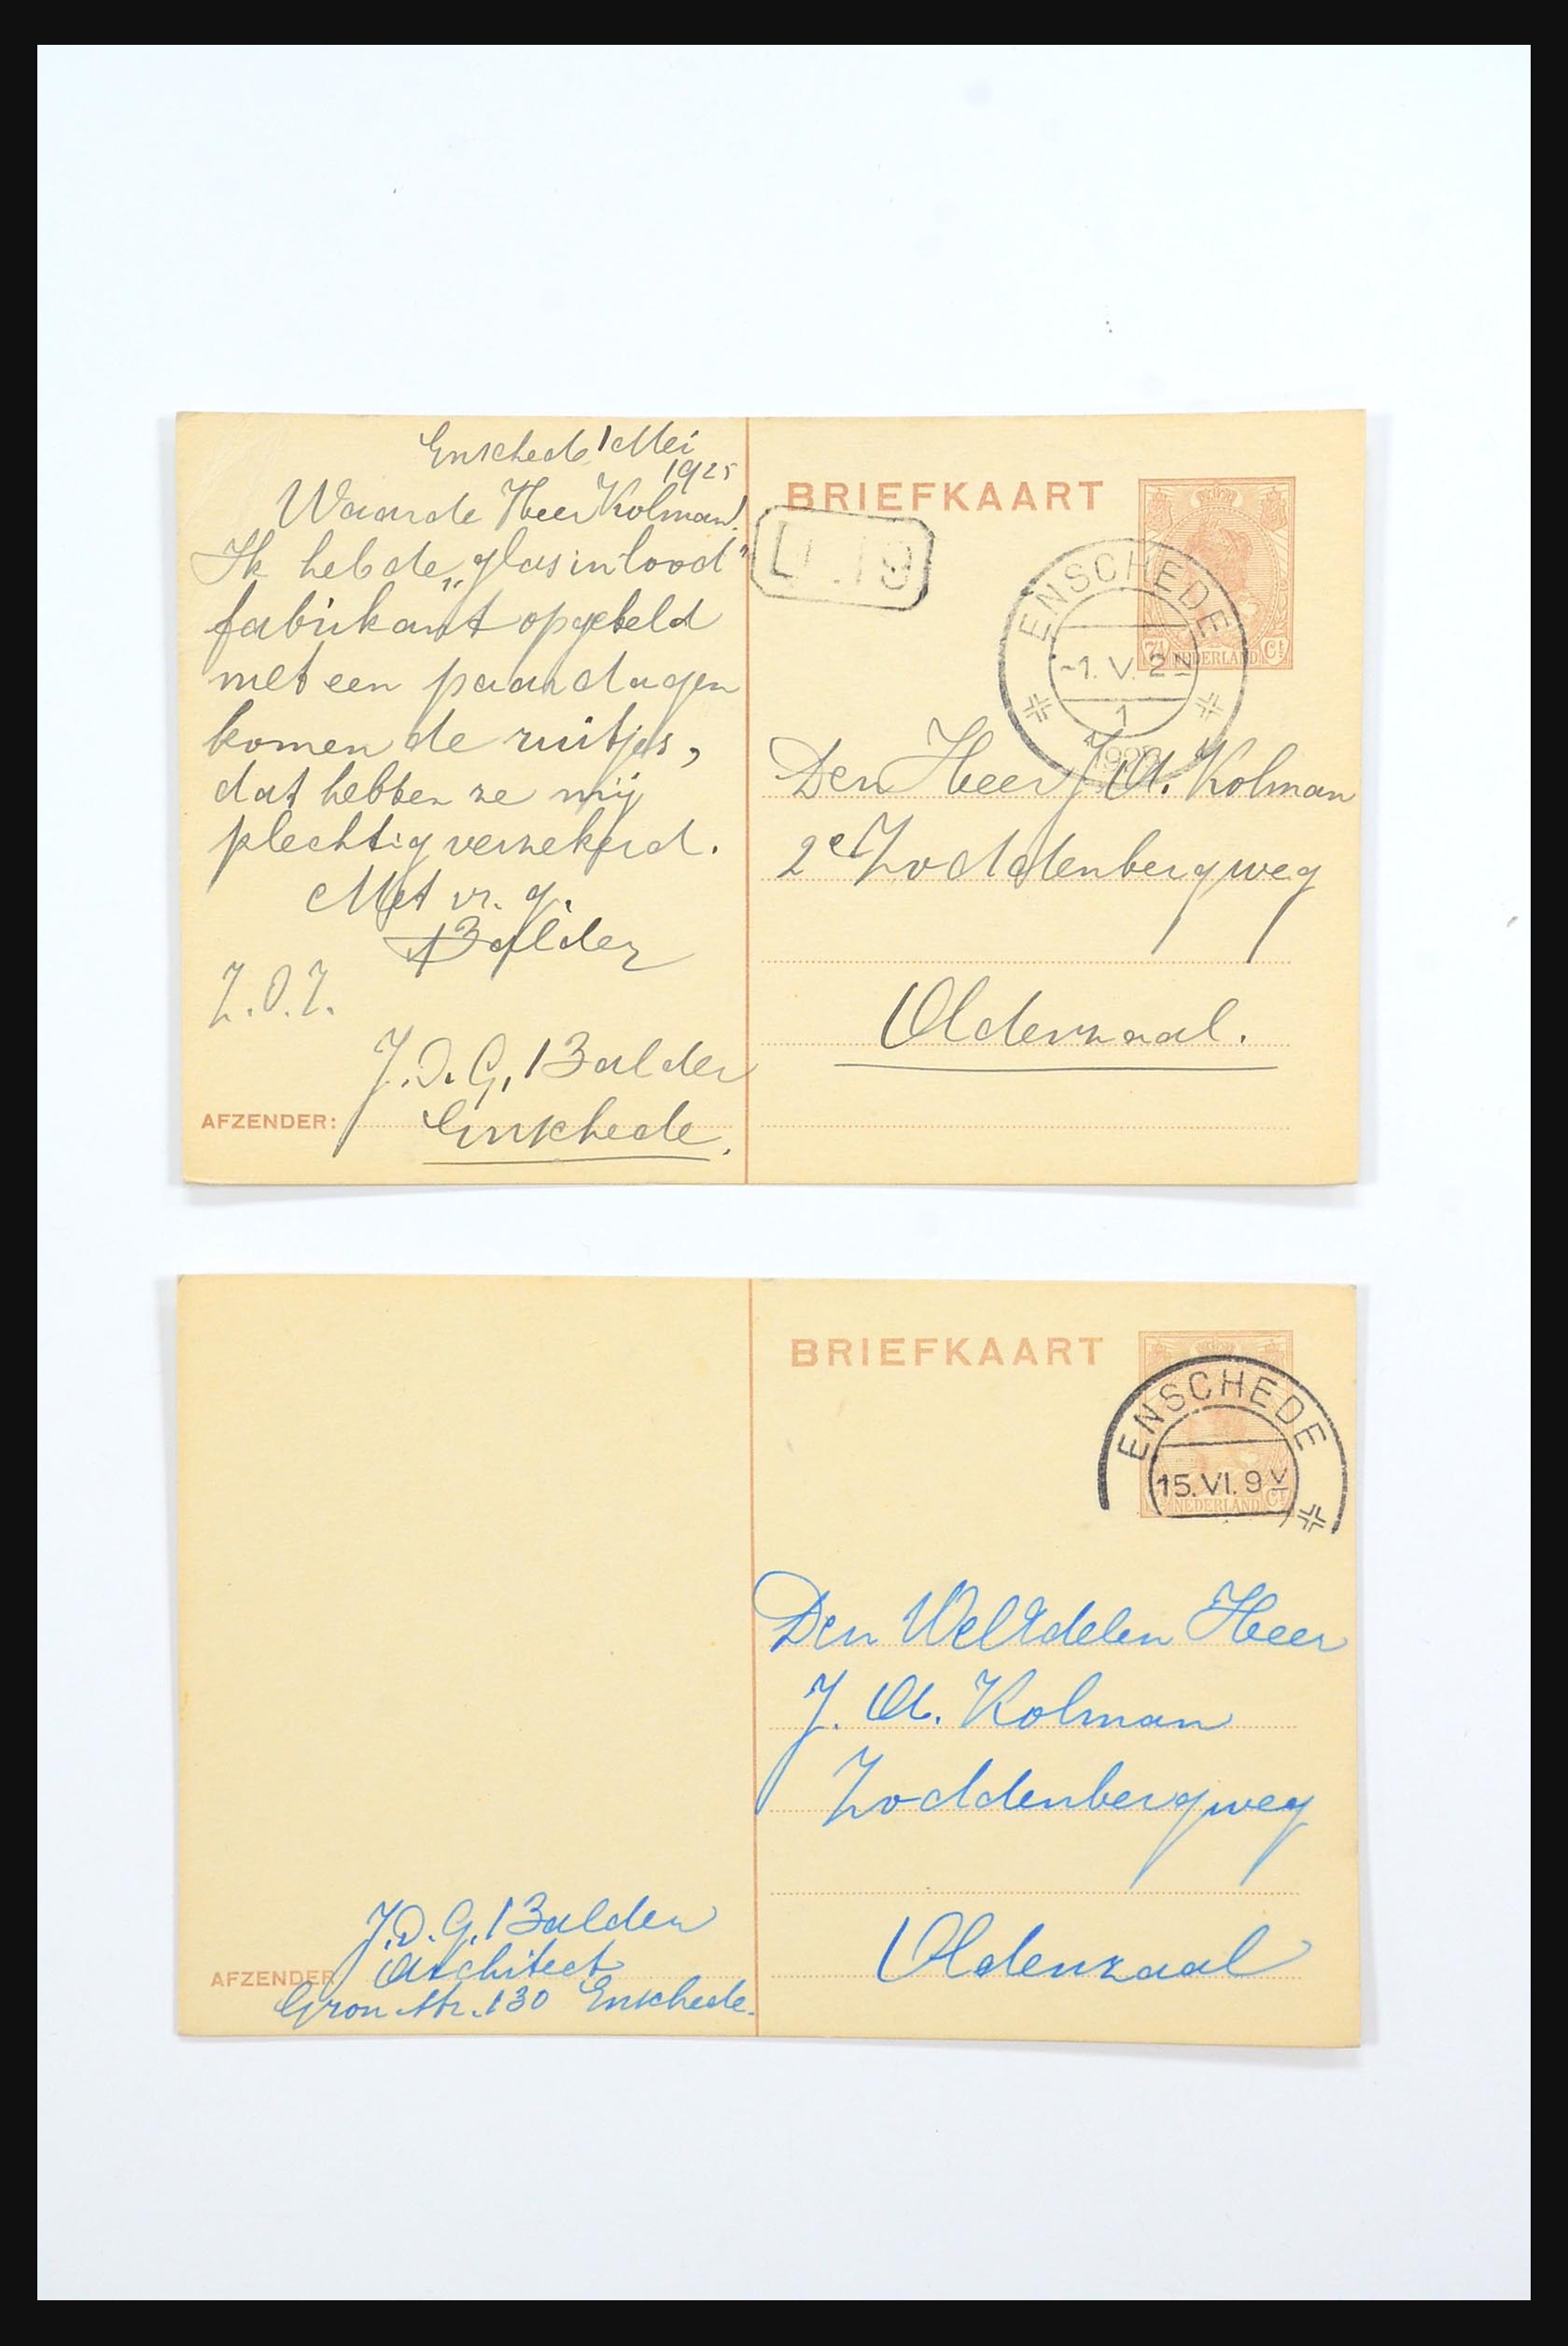 Enschede 1 Mei
1925
Waarde Heer Kolman!
Ik heb de „glas in lood"
fabrikant opgebeld
met een paar dagen
komen de ruitjes,
dat hebben ze mij
plechtig verzekerd.
Met vr. g.
Balder
Z.O.Z.
J.D.G. Balder
AFZENDER: Enschede.
BRIEFKAART
7½ NEDERLAND Ct
ENSCHEDE
-1.V.2N
1
Den Heer J.A. Kolman
2e Zoddenbergweg
Oldenzaal.
BRIEFKAART
NEDERLAND Ct
ENSCHEDE
15.VI.9V
Den WelEdelen Heer
J. A. Kolman
Zoddenbergweg
Oldenzaal
J.D.G. Balder
AFZENDER Architect
Gron. str. 130 Enschede.